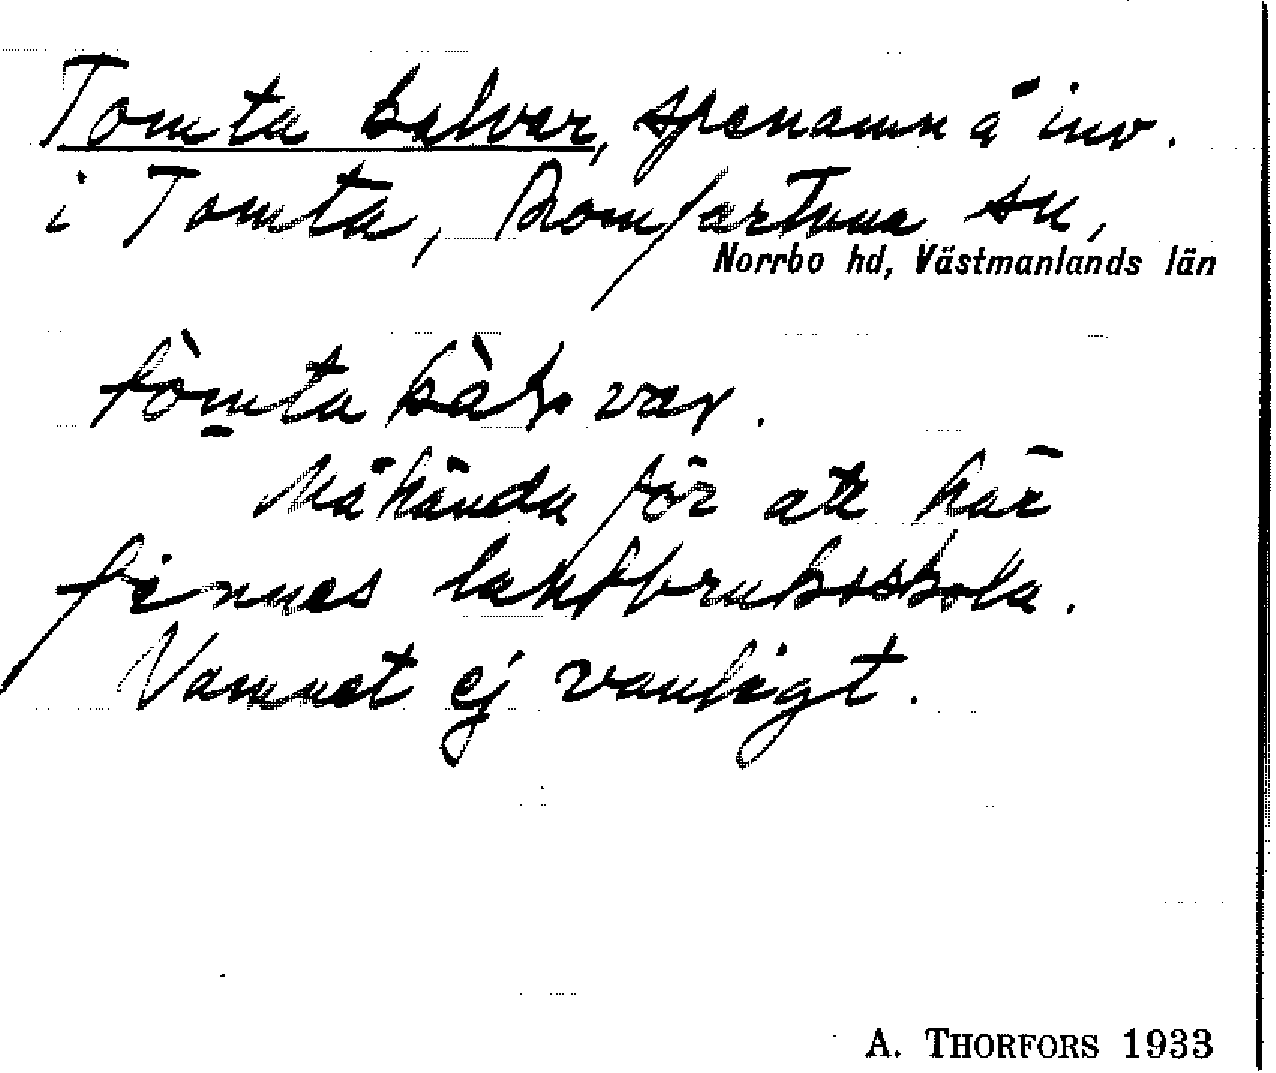 Tomta kalvar, spenamn å inv.
i Tomta, Romfartuna sn,
Norrbo hd, Västmanlands län
tòmta kàlvar.
Måhända för att här
finnes lantbruksskola.
Namnet ej vanligt.
A. THORFORS 1933